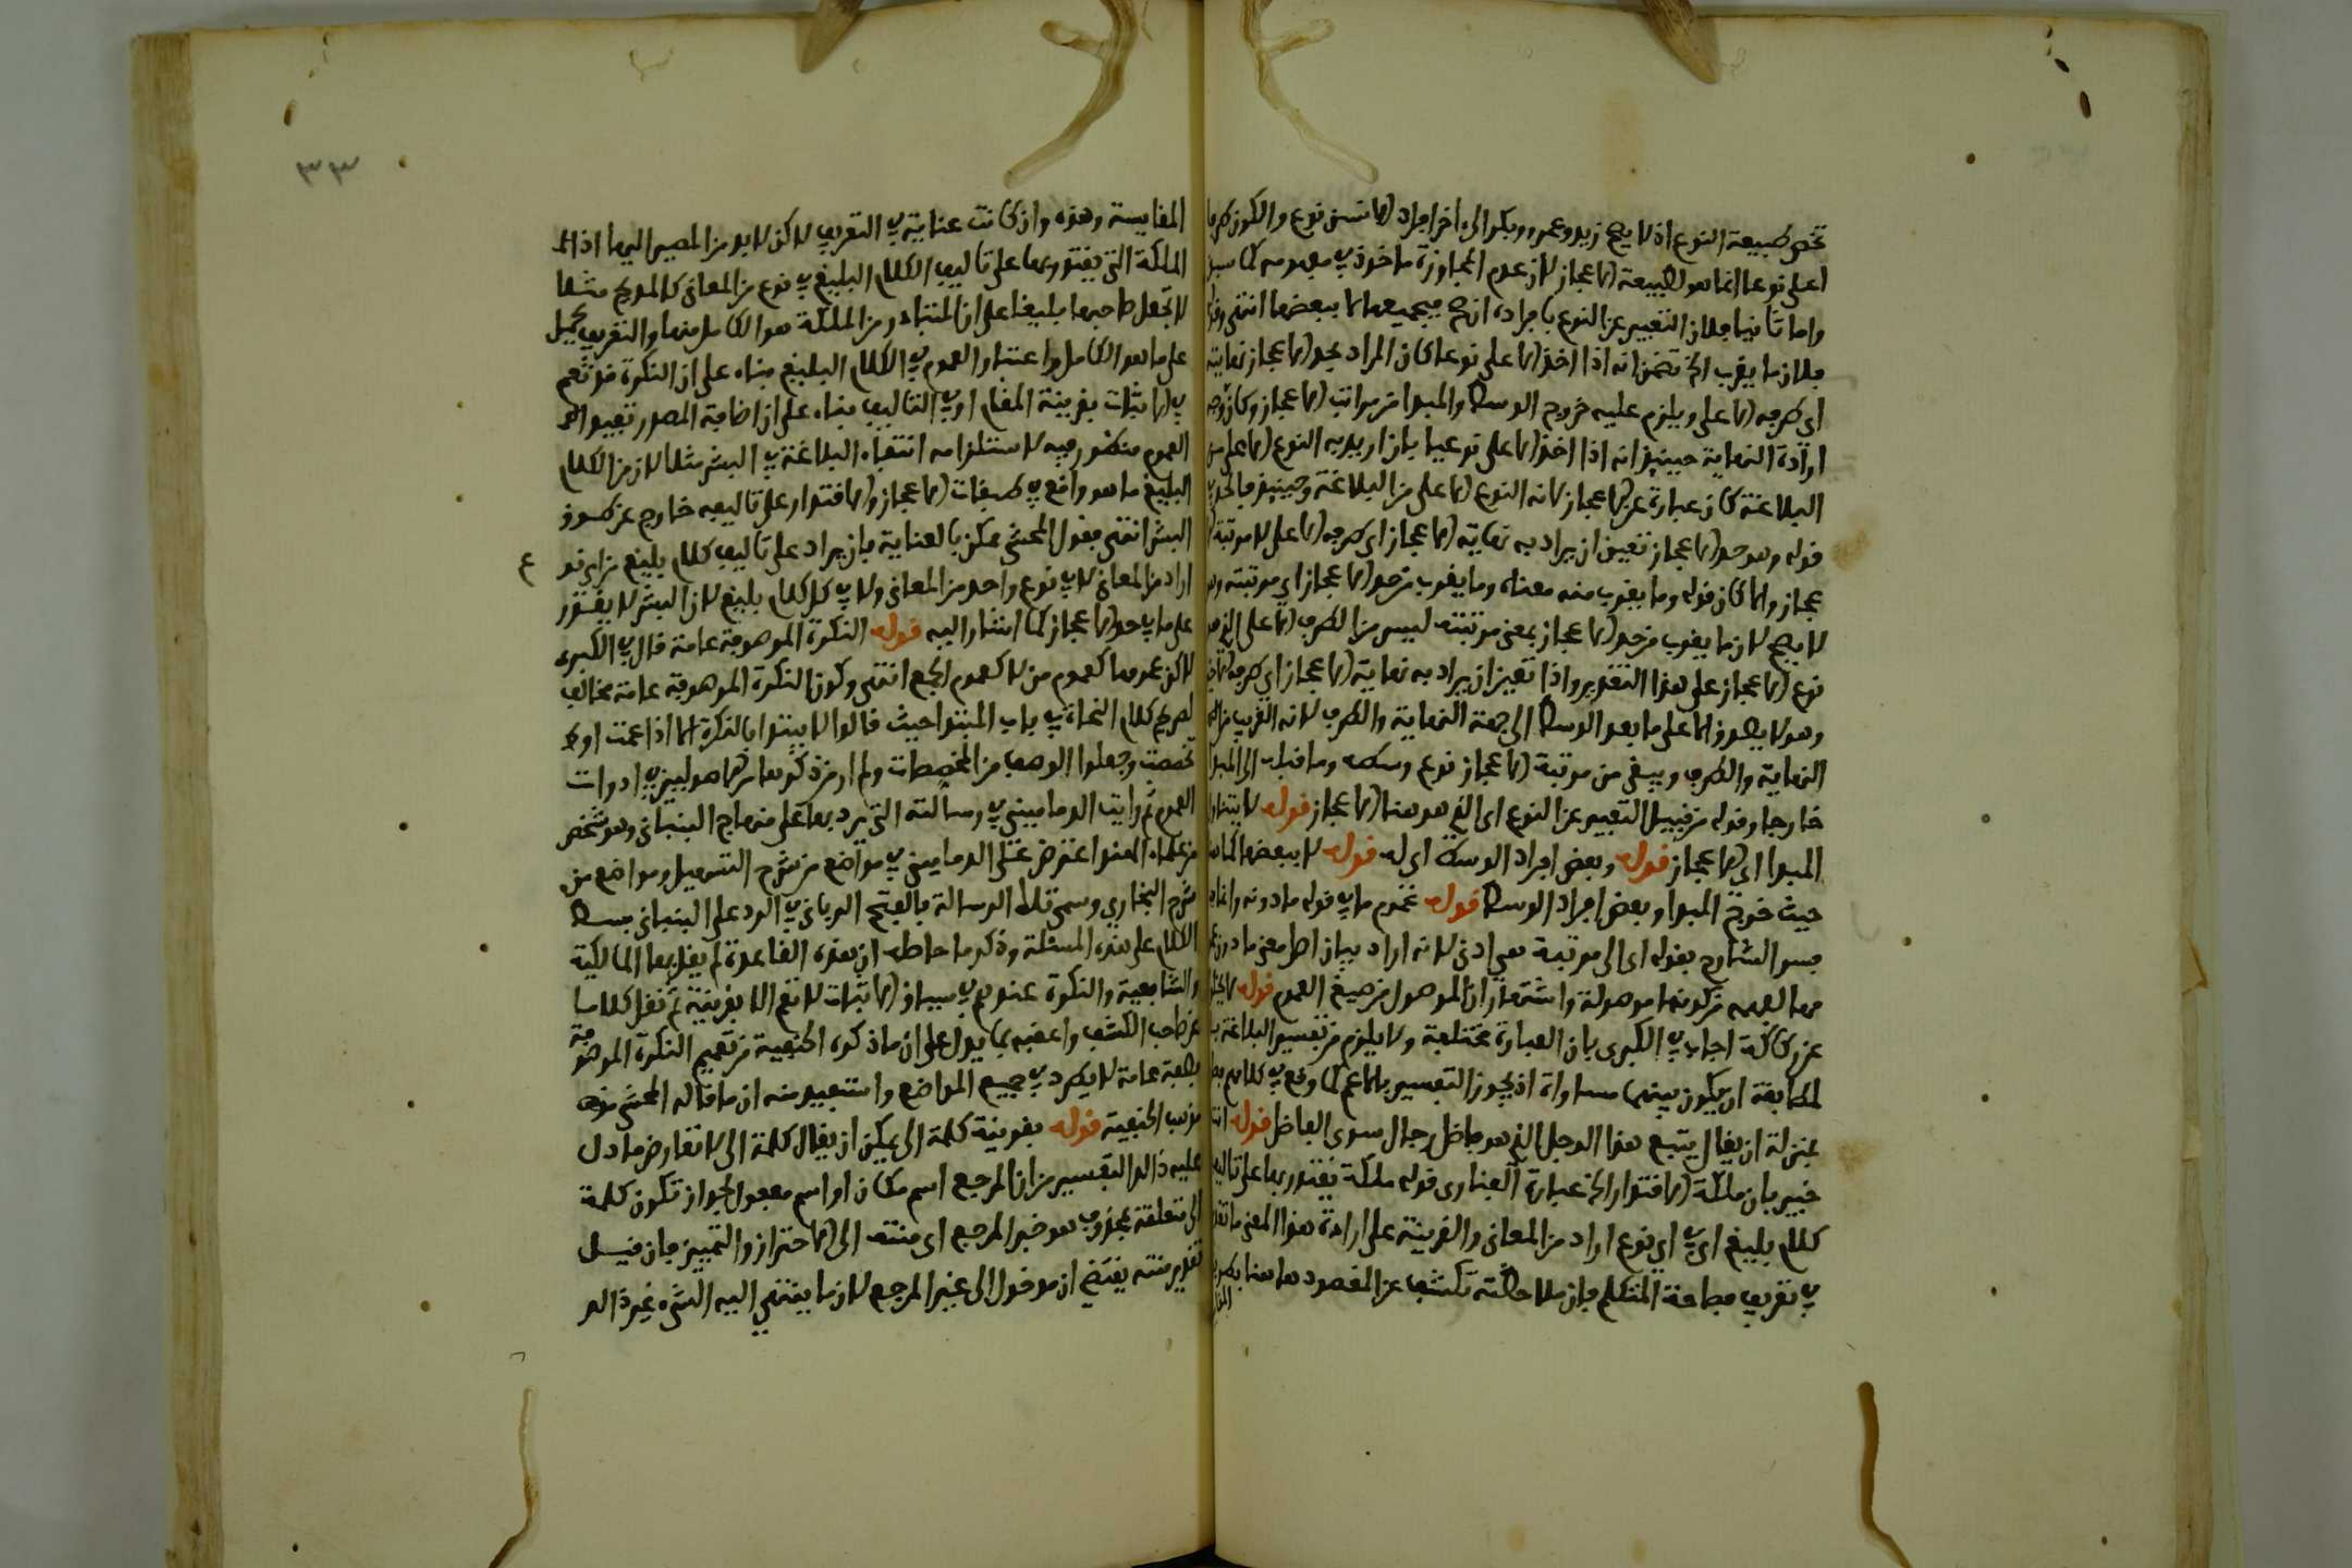 تخص طبيعة النوع اذ لا يصح زيد وعمرو وبكر الى اخر افراد الانسان نوع والكون طرفا
اعلى نوعا انما هو لطبيعة الاعجاز لان عدم المجاوزة ماخوذ في مفهومه كما سبق
واما ثانيا فلان التعبير عن النوع بافراده ان صح فبجميعها لا ببعضها انتهى
فلان ما يقرب الخ تضمن انه اذا اخذ الاعلى نوعا كان المراد بحد الاعجاز نهايته
اي طرفه الاعلى ويلزم عليه خروج الوسط والمبدا من مراتب الاعجاز وكان وجه
ارادة النهاية حينئذ انه اذا اخذ الاعلى نوعيا بان اريد به النوع الاعلى من
البلاغة كان عبارة عن الاعجاز لانه النوع الاعلى من البلاغة وحينئذ فالحد في
قوله وهو حد الاعجاز تعين ان يراد به نهاية الاعجاز اي طرفه الاعلى لا مرتبة
عجاز والا كان قوله وما يقرب منه معناه وما يقرب من حد الاعجاز اي مرتبته
لا يصح لان ما يقرب من حد الاعجاز بمعنى مرتبته ليس من الطرف الاعلى الذي هو
نوع الاعجاز على هذا التقدير واذا تعين ان يراد به نهاية الاعجاز اي طرفه
وهو لا يصدق الا على ما بعد الوسط الى جهة النهاية والطرف لانه القريب من
النهاية والطرف ويبقى من مرتبة الاعجاز نوع وسطه وما قبله الى المبدا
خارجا وقوله من قبيل التعبير عن النوع اي الذي هو هنا الاعجاز قوله لا يتناول
المبدا اي الاعجاز قوله وبعض افراد الوسط اي له قوله لا ببعضها
حيث خرج المبدا وبعض افراد الوسط قوله عموم ما في قوله ما دونه
فسر الشارح بقوله اي الى مرتبة هي ادنى لانه اراد بيان اصل معنى ما دون
من كونها موصولة واشتهار ان الموصول من صيغ العموم قوله
اجاب في الكبرى بان العبارة مختلفة ولا يلزم من تفسير البلاغة
المطابقة ان يكون بينهما مساواة اذ يجوز التفسير بالاعم كما وقع في كلامهم
بمنزلة ان يقال يتبع هذا الرجل الذي هو فاضل رجال سوى الفاضل قوله
خبير بان ملكة الاقتدار الخ عبارة الفناري قوله ملكة يقتدر بها على تاليف
كلام بليغ اي في اي نوع اراد من المعاني والقرينة على ارادة هذا المعنى
في تعريف فصاحة المتكلم فان ملاحظته تكشف عن المقصود ها هنا بطريق
٣٣
المقايسة وهذه وان كانت عناية في التعريف لاكن لا بد من المصير اليها اذ
الملكة التي يقتدر بها على تاليف الكلام البليغ في نوع من المعاني كالمديح مثلا
لا تجعل صاحبها بليغا على ان المتبادر من الملكة هو الكامل منها والتعريف يحمل
على ما هو الكامل واعتبار العموم في الكلام البليغ بناء على ان النكرة قد تعم
في الاثبات بقرينة المقام او في التاليف بناء على ان اضافة المصدر تفيد
العموم منظور فيه لاستلزامه انتفاء البلاغة في البشر مثلا لان من الكلام
البليغ ما هو واقع في طبقات الاعجاز والاقتدار على تاليفه خارج عن طوق
البشر انتهى فقول المحشي يمكن بالعناية بان يراد على تاليف كلام بليغ من اي نو ع
اراد من المعاني لا في نوع واحد من المعاني ولا في كل كلام بليغ لان البشر لا يقتدر
على ما في حد الاعجاز كما اشار اليه قوله النكرة الموصوفة عامة قال في الكبرى
لاكن عمومها كعموم من لا كعموم الجمع انتهى وكون النكرة الموصوفة عامة مخالف
لصريح كلام النحاة في باب المبتدا حيث قالوا لا يبتدا بالنكرة الا اذا عمت او
تخصصت وجعلوا الوصف من المخصصات ولم ار من ذكرها من الاصوليين في ادوات
العموم ثم رايت الدماميني في رسالته التي رد بها على منهاج البنباني وهو شخص
من علماء الهند اعترض على الدماميني في مواضع من شرح التسهيل ومواضع من
شرح البخاري وسمى تلك الرسالة بالفتح الرباني في الرد على البنباني بسط
الكلام على هذه المسئلة وذكر ما حاصله ان هذه القاعدة لم يقل بها المالكية
والشافعية والنكرة عندهم في سياق الاثبات لا تعم الا بقرينة ثم نقل كلاما
عن صاحب الكشف واعقبه بما يدل على ان ما ذكره الحنفية من تعميم النكرة الموصوفة
بصفة عامة لا يطرد في جميع المواضع واستفيد منه ان ما قاله المحشي
مذهب الحنفية قوله بقرينة كلمة الى يمكن ان يقال كلمة الى لا تعارض ما دل
عليه ذالك التفسير من ان المرجع اسم مكان او اسم مفعول لجواز تكون كلمة
الى متعلقة بمحذوف هو خبر المرجع اي منتهى الى الاحتراز والتمييز فان قيل
تقدير منته يقتضي ان مدخول الى غير المرجع لان ما ينتهي اليه الشيء غير ذالك